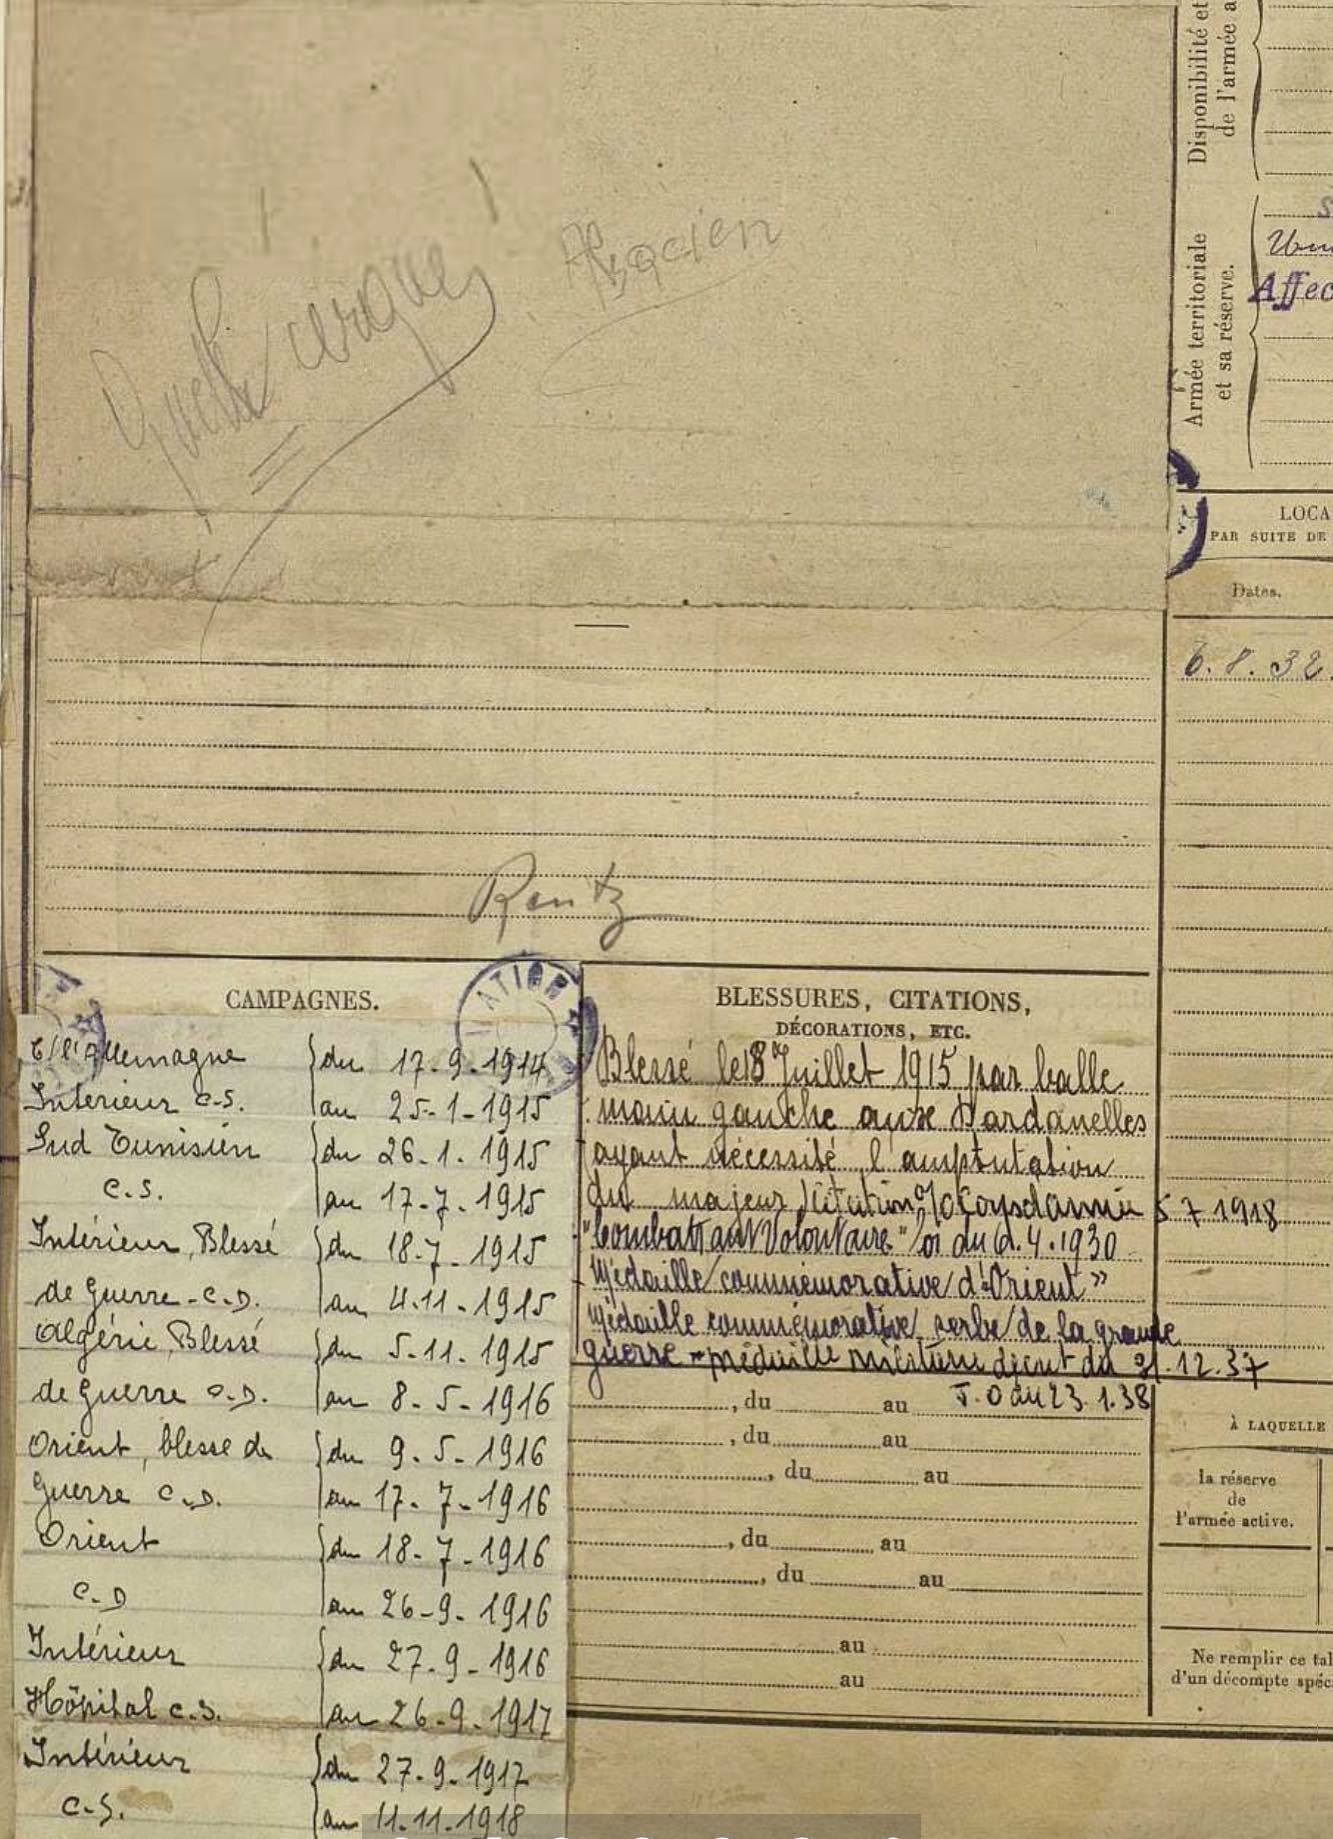 Disponibilité et
de l'armée a
Alsacien
Armée territoriale
et sa réserve.
Affec
LOCA
PAR SUITE DE
Dates.
6.8.32.
Rentz
CAMPAGNES.
C/ l'Allemagne } du 17-9-1914
Intérieur C.S. au 25-1-1915
Sud Tunisien } du 26.1.1915
C.S. au 17-7-1915
Intérieur, Blessé } du 18-7-1915
de Guerre - C.D. au 4.11-1915
Algérie, Blessé } du 5.11.1915
de Guerre C.D. au 8-5-1916
Orient, blessé de } du 9-5-1916
Guerre C.D. au 17-7-1916
Orient } du 18-7-1916
C.D au 26-9-1916
Intérieur } du 27-9-1916
Hôpital C.S. au 26-9-1917
Intérieur } du 27-9-1917
C.S. au 11.11.1918
BLESSURES, CITATIONS,
DÉCORATIONS, ETC.
Blessé le 18 Juillet 1915 par balle
main gauche aux Dardanelles
ayant nécessité l'amputation
du majeur Citation 5 7 1918
"Combattant Volontaire" loi du 4.1930
Médaille commémorative d'Orient"
Médaille commémorative serbe de la grande
guerre - médaille militaire décret du 21.12.37
, du au J.O du 23.1.38
, du au
, du au
, du au
, du au
au
au
À LAQUELLE
la réserve
de
l'armée active.
Ne remplir ce ta
d'un décompte spéc